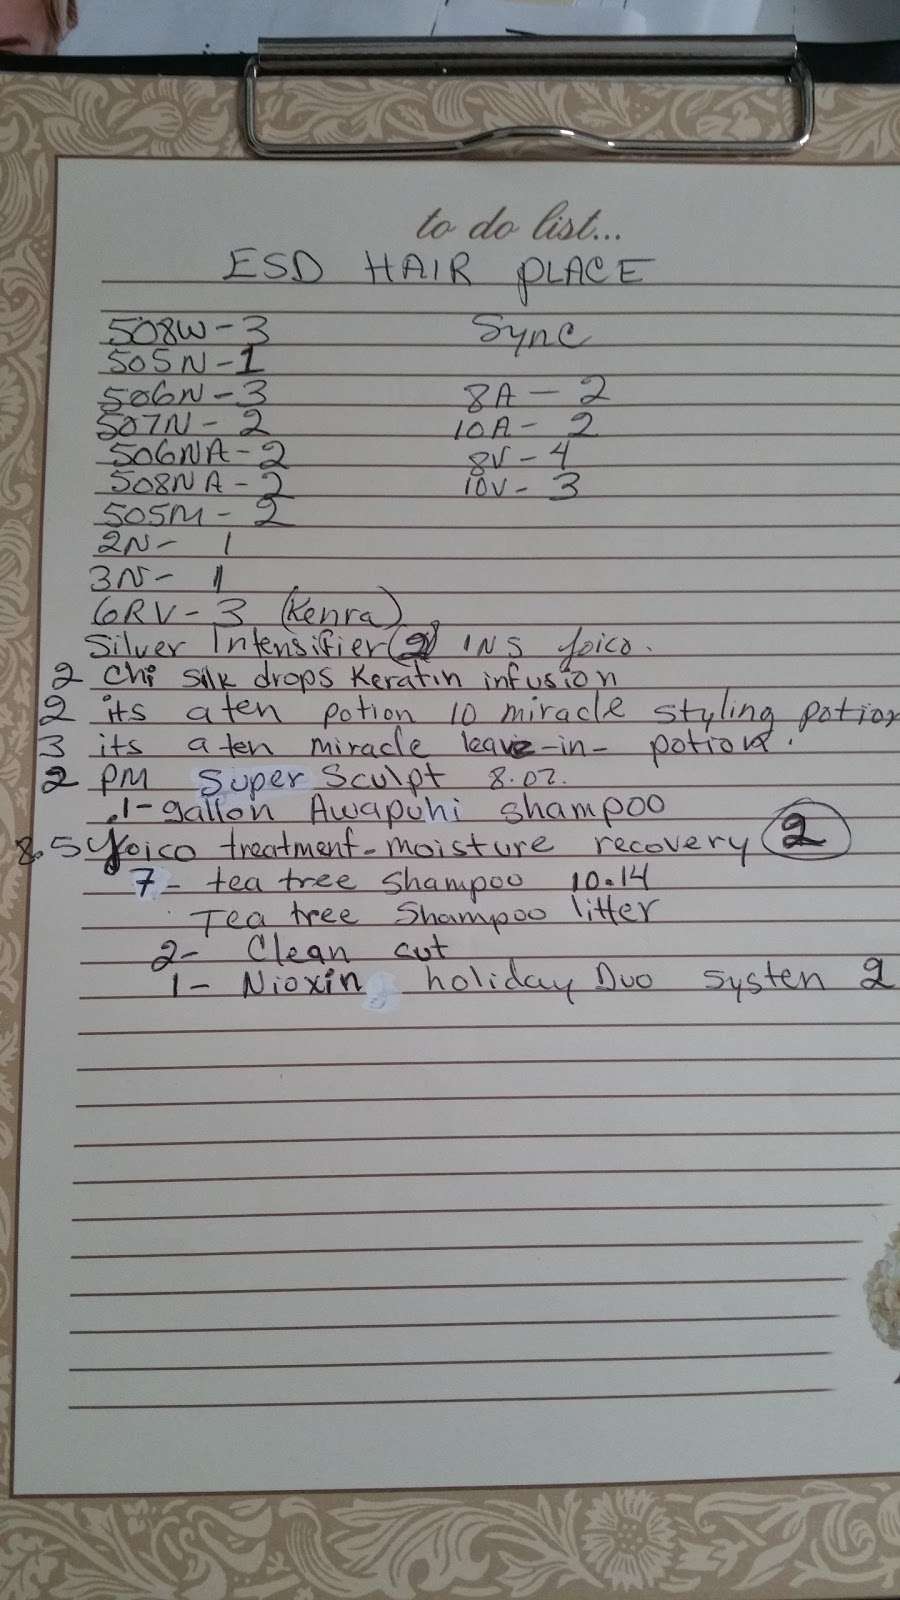 to do list...
ESD HAIR PLACE
508W - 3
505N - 1
506N - 3
507N - 2
506NA - 2
508NA - 2
505M - 2
2N - 1
3N - 1
6RV - 3 (Kenra)
Sync
8A - 2
10A - 2
8V - 4
10V - 3
Silver Intensifier (2) INS Joico.
2 Chi silk drops Keratin infusion
2 its a ten potion 10 miracle styling potion
3 its a ten miracle leave-in- potion.
2 PM Super Sculpt 8.oz.
1-gallon Awapuhi shampoo
8.5 Joico treatment-moisture recovery 2
7 - tea tree shampoo 10.14
Tea tree Shampoo litter
2- Clean cut
1- Nioxin holiday Duo Systen 2